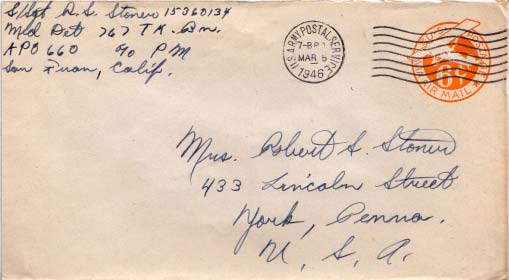 S/Sgt R. S. Stoner 15360134
Med Det 767 TK. Bn.
APO 660 c/o P M
San Fran, Calif.
U.S. ARMY POSTAL SERVICE
MAR 5
1946
U.S. POSTAGE
6¢
VIA AIR MAIL
Mrs. Robert S. Stoner
433 Lincoln Street
York, Penna.
U. S. A.